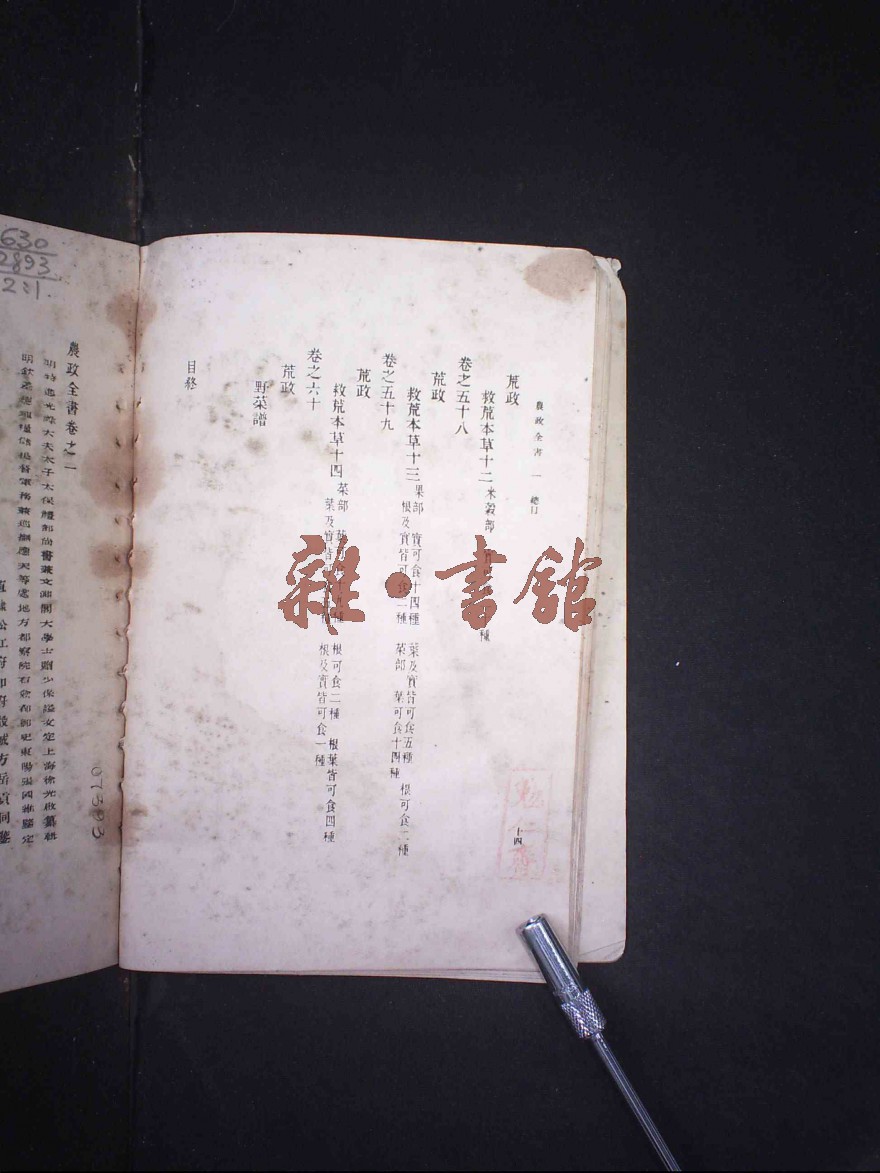 農政全書 一 總目
十四
荒政
救荒本草十二 米穀部
種
卷之五十八
荒政
救荒本草十三 果部 實可食十四種 葉及實皆可食五種 根可食二種
根及實皆可食二種 菜部 葉可食十四種
卷之五十九
荒政
救荒本草十四 菜部 根可食二種 根葉皆可食四種
葉及實皆可 根及實皆可食一種
卷之六十
荒政
野菜譜
目終
雜·書館
630
2893
2:1
農政全書卷之一
明特進光祿大夫太子太保禮部尚書兼文淵閣大學士贈少保謚文定上海徐光啟纂輯
明欽差總理糧儲提督軍務兼巡撫應天等處地方都察院右僉都御史東陽張國維鑒定
直隸松江府知府穀城方岳貢同鑒
07393